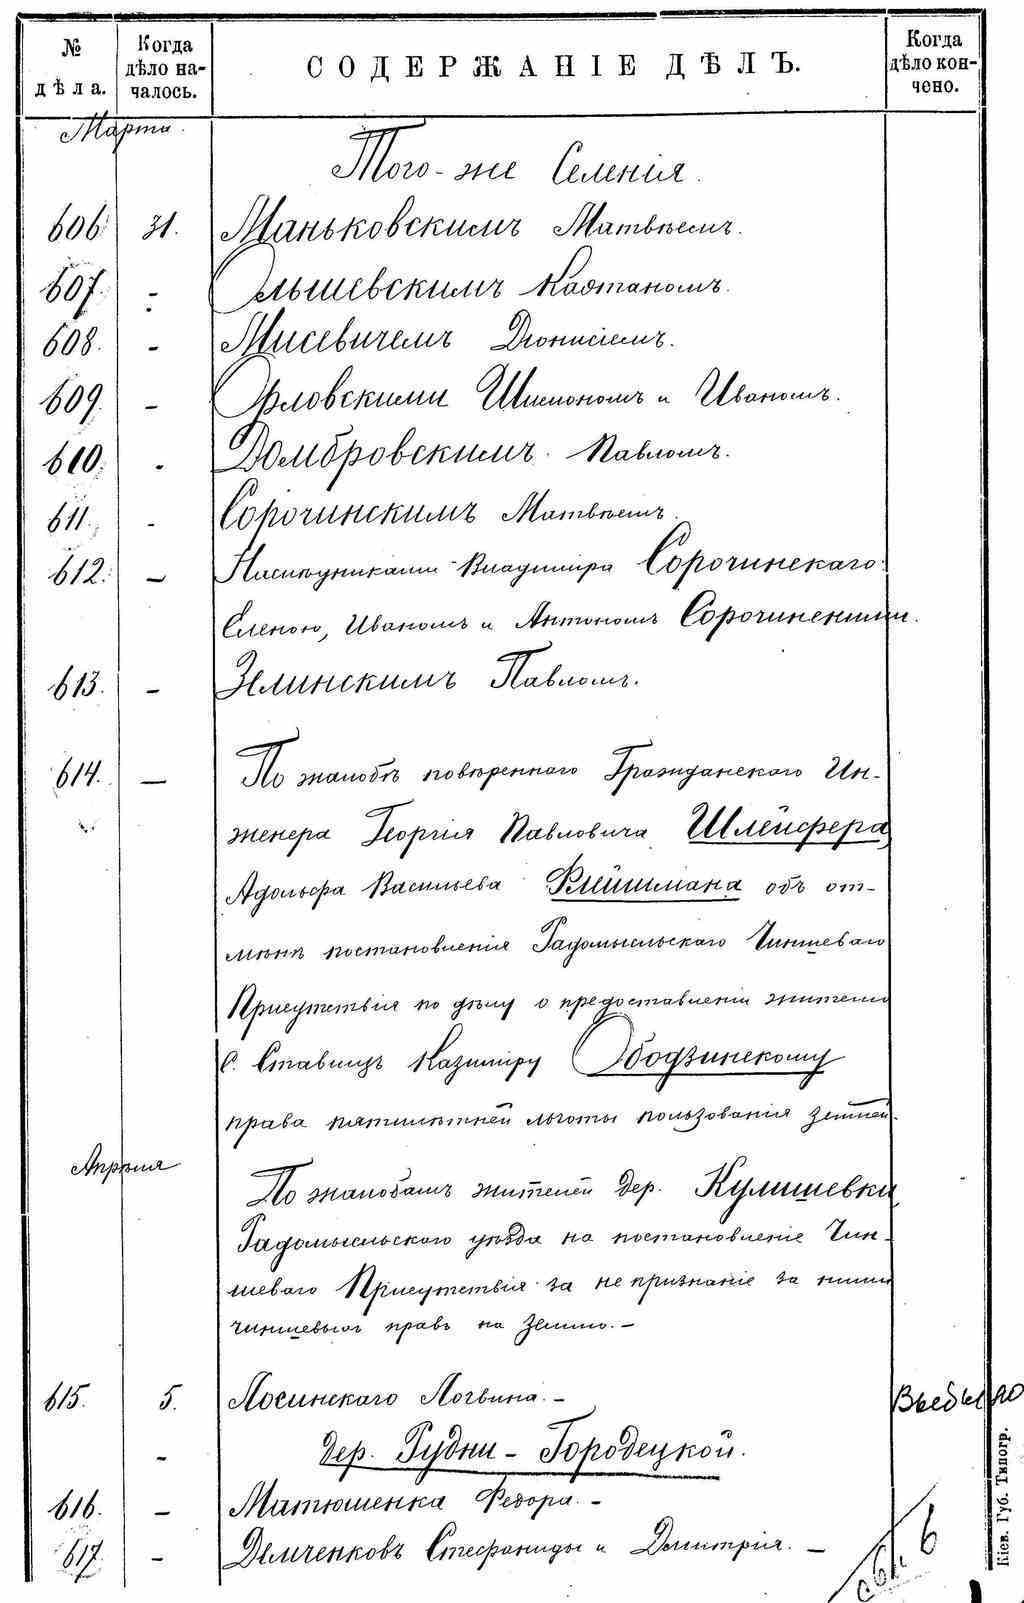 № дѣла.
Когда дѣло на-
чалось.
СОДЕРЖАНІЕ ДѢЛЪ.
Когда дѣло кон-
чено.
Марта.
Того-же Селенія.
606 31. Маньковскимъ Матвѣемъ.
607. - Ольшевскимъ Каэтаномъ.
608. - Мисевичемъ Діонисіемъ.
609. - Орловскими Шимономъ и Иваномъ.
610. - Домбровскимъ Павломъ.
611. - Сорочинскимъ Матвѣемъ.
612. - Наслѣдниками Владиміра Сорочинскаго:
Еленою, Иваномъ и Антономъ Сорочинскими.
613. - Зелинскимъ Павломъ.
614. - По жалобѣ повѣреннаго Гражданскаго Ин-
женера Георгія Павловича Шлейфера,
Адольфа Васильева Флейшмана объ от-
мѣнѣ постановленія Радомысльскаго Чиншеваго
Присутствія по дѣлу о предоставленіи жителю
С. Ставищъ Казиміру Ободзинскому
права пятилѣтней льготы пользованія землей.
Апрѣля
По жалобамъ жителей дер. Кулишевки
Радомысльскаго уѣзда на постановленіе Чин-
шеваго Присутствія за не признаніе за ними
чиншевыхъ правъ на землю.-
615. 5. Лосинскаго Логвина.- Выбыло
- дер. Рудни-Городецкой.
616. - Матюшенка Федора.-
617. - Демченковъ Стефаниды и Дмитрія.-
6
Кіев. Губ. Типогр.